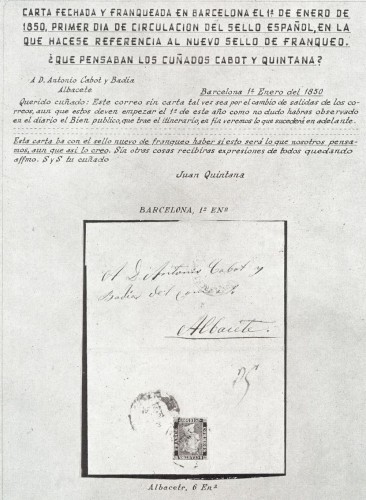 CARTA FECHADA Y FRANQUEADA EN BARCELONA EL 1º DE ENERO DE
1850, PRIMER DIA DE CIRCULACION DEL SELLO ESPAÑOL, EN LA
QUE HACESE REFERENCIA AL NUEVO SELLO DE FRANQUEO.
¿QUE PENSABAN LOS CUÑADOS CABOT Y QUINTANA?
A D. Antonio Cabot y Badia
Albacete
Barcelona 1º Enero del 1850
Querido cuñado: Este correo sin carta tal ves sea por el cambio de salidas de los co-
rreos, aun que estos deven empezar el 1º de este año como no dudo habras observado
en el diario el Bien publico, que trae el itinerario, en fin veremos lo que sucederá en adelante.
Esta carta ba con el sello nuevo de franqueo haber si esto será lo que nosotros pensa-
mos, aun que asi lo creo. Sin otras cosas recibiras expresiones de todos quedando
affmo. S y S tu cuñado
Juan Quintana
BARCELONA, 1º ENº
A D. Antonio Cabot y
Badia del
Albacete.
Albacetr, 6 Enº